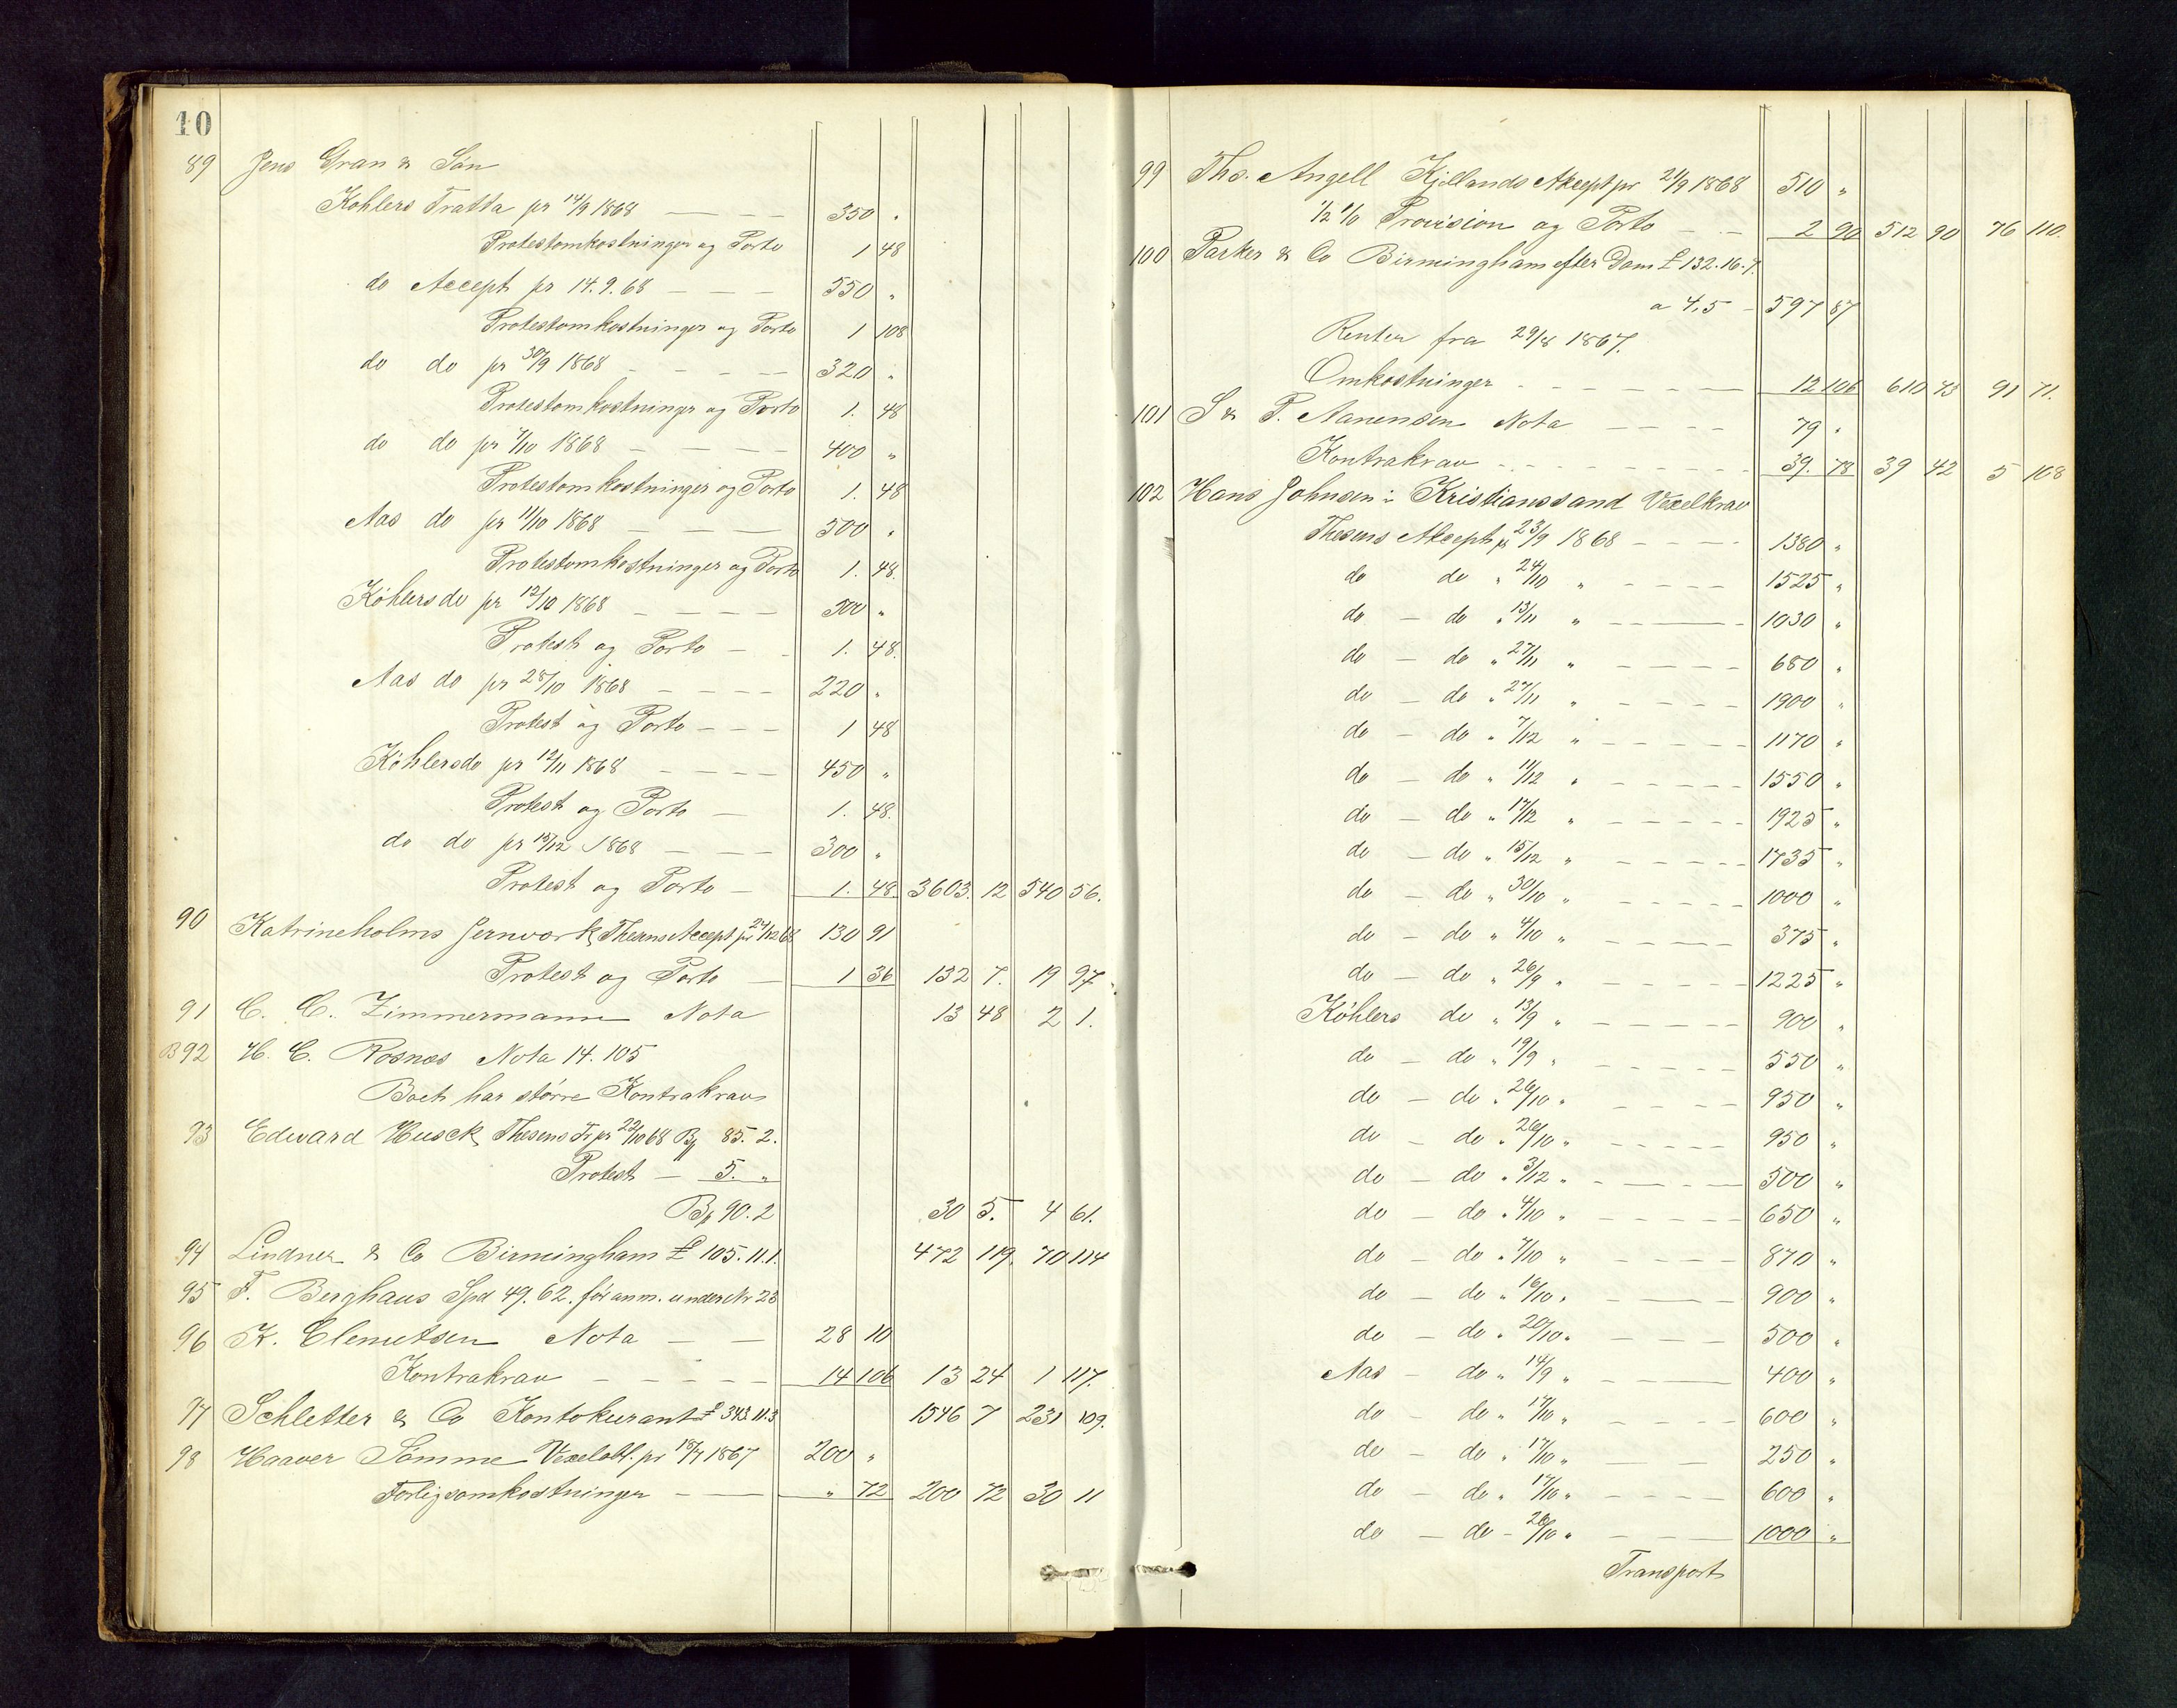 10
89 Jens Gran & Søn
Köhlers Tratta pr 14/9 1868 — — — 350 "
Protestomkostninger og Porto 1 48
do Accept pr 14.9.68 — — — 550 "
Protestomkostninger og Porto 1 108
do do pr 30/9 1868 — — — 320 "
Protestomkostninger og Porto 1. 48
do do pr 7/10 1868 — — — 400 "
Protestomkostninger og Porto 1. 48
Aas do pr 11/10 1868 — — — 500 "
Protestomkostninger og Porto 1. 48.
Köhlers do pr 12/10 1868 — — — 500 "
Protest og Porto — — 1. 48.
Aas do pr 28/10 1868 — — — 220 "
Protest og Porto — — — 1 48
Köhlers do pr 12/11 1868 — — — 450 "
Protest og Porto — 1. 48.
do do pr 15/12 1868 — — — 300 "
Protest og Porto — 1. 48. 3603. 12 540 56.
90 Katrineholms Jernværk, Thesens Accept pr 24/12 68 130 91
Protest og Porto — 1 36 132 7. 19 97
91 C. C. Zimmermann Nota 13 48 2 1.
B 92 H. C. Rosnæs Nota 14. 105
Boet har større Kontrakrav
93 Edward Husck, Thesens Tr. pr 22/10 68 B 85. 2.
Protest — 5. "
B 90. 2 30 5. 4 61.
94 Lindner & Co Birmingham £ 105. 11. 1. 472 119. 70 114
95 F. Berghaus Spd 49. 62. før anm. under No 23
96 K. Clemetsen Nota — — 28 10
Kontrakrav — — — — 14 106 13 24 1 117.
97 Schletter & Co Kontokurant £ 343. 11. 3 1546 7 231 109.
98 Haaver Sømme Vexelobl. pr 18/7 1867 200 "
Forligsomkostninger — — " 72 200 72 30 11
99 Ths. Angell Kjellands Akcept pr 21/9 1868 510 "
1/2 % Provision og Porto — — 2 90 512 90 76 110.
100 Parker & Co Birmingham efter Dom £ 132. 16. 7.
a 4,5 — 597 87
Renter fra 29/8 1867.
Omkostninger — — — — 12 106 610 73 91 71.
101 S & P. Aanensen Nota — — — — 79 "
Kontrakrav — — — — 39. 78 39 42 5 108
102 Hans Johnsen i Kristianssand Vexelkrav
Thesens Akcept pr 23/9 1868 — — — 1380 "
do do " 24/10 " — — — 1525 "
do — do " 13/11 " — — — 1030 "
do — do " 27/11 " — — — 680 "
do — do " 27/11 " — — — 1900 "
do — do " 7/12 " — — — 1170 "
do — do " 11/12 " — — — 1550 "
do — do " 17/12 " — — — 1925 "
do — do " 15/12 " — — — 1735 "
do — do " 30/10 " — — — 1000 "
do — do " 4/10 " — — — 375 "
do — do " 26/9 " — — — 1225 "
Köhlers do " 13/9 " — — — 900 "
do — do " 19/9 " — — — 550 "
do — do " 26/10 " — — — 950 "
do — do " 26/10 " — — — 950 "
do — do " 3/12 " — — — 500 "
do — do " 4/10 " — — — 650 "
do — do " 7/10 " — — — 870 "
do — do " 16/10 " — — — 900 "
do — do " 20/10 " — — — 500 "
Aas — do " 14/9 " — — — 400 "
do — do " 17/10 " — — — 600 "
do — do " 17/10 " — — 250 "
do — do " 17/10 " — — — 600 "
do — do — 26/10 " — — — 1000 "
Transport